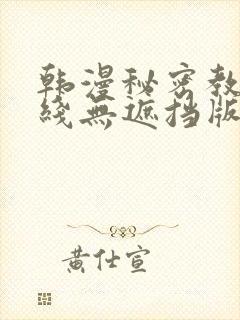 韩漫秘密教
线無遮挡版
黄仕宣